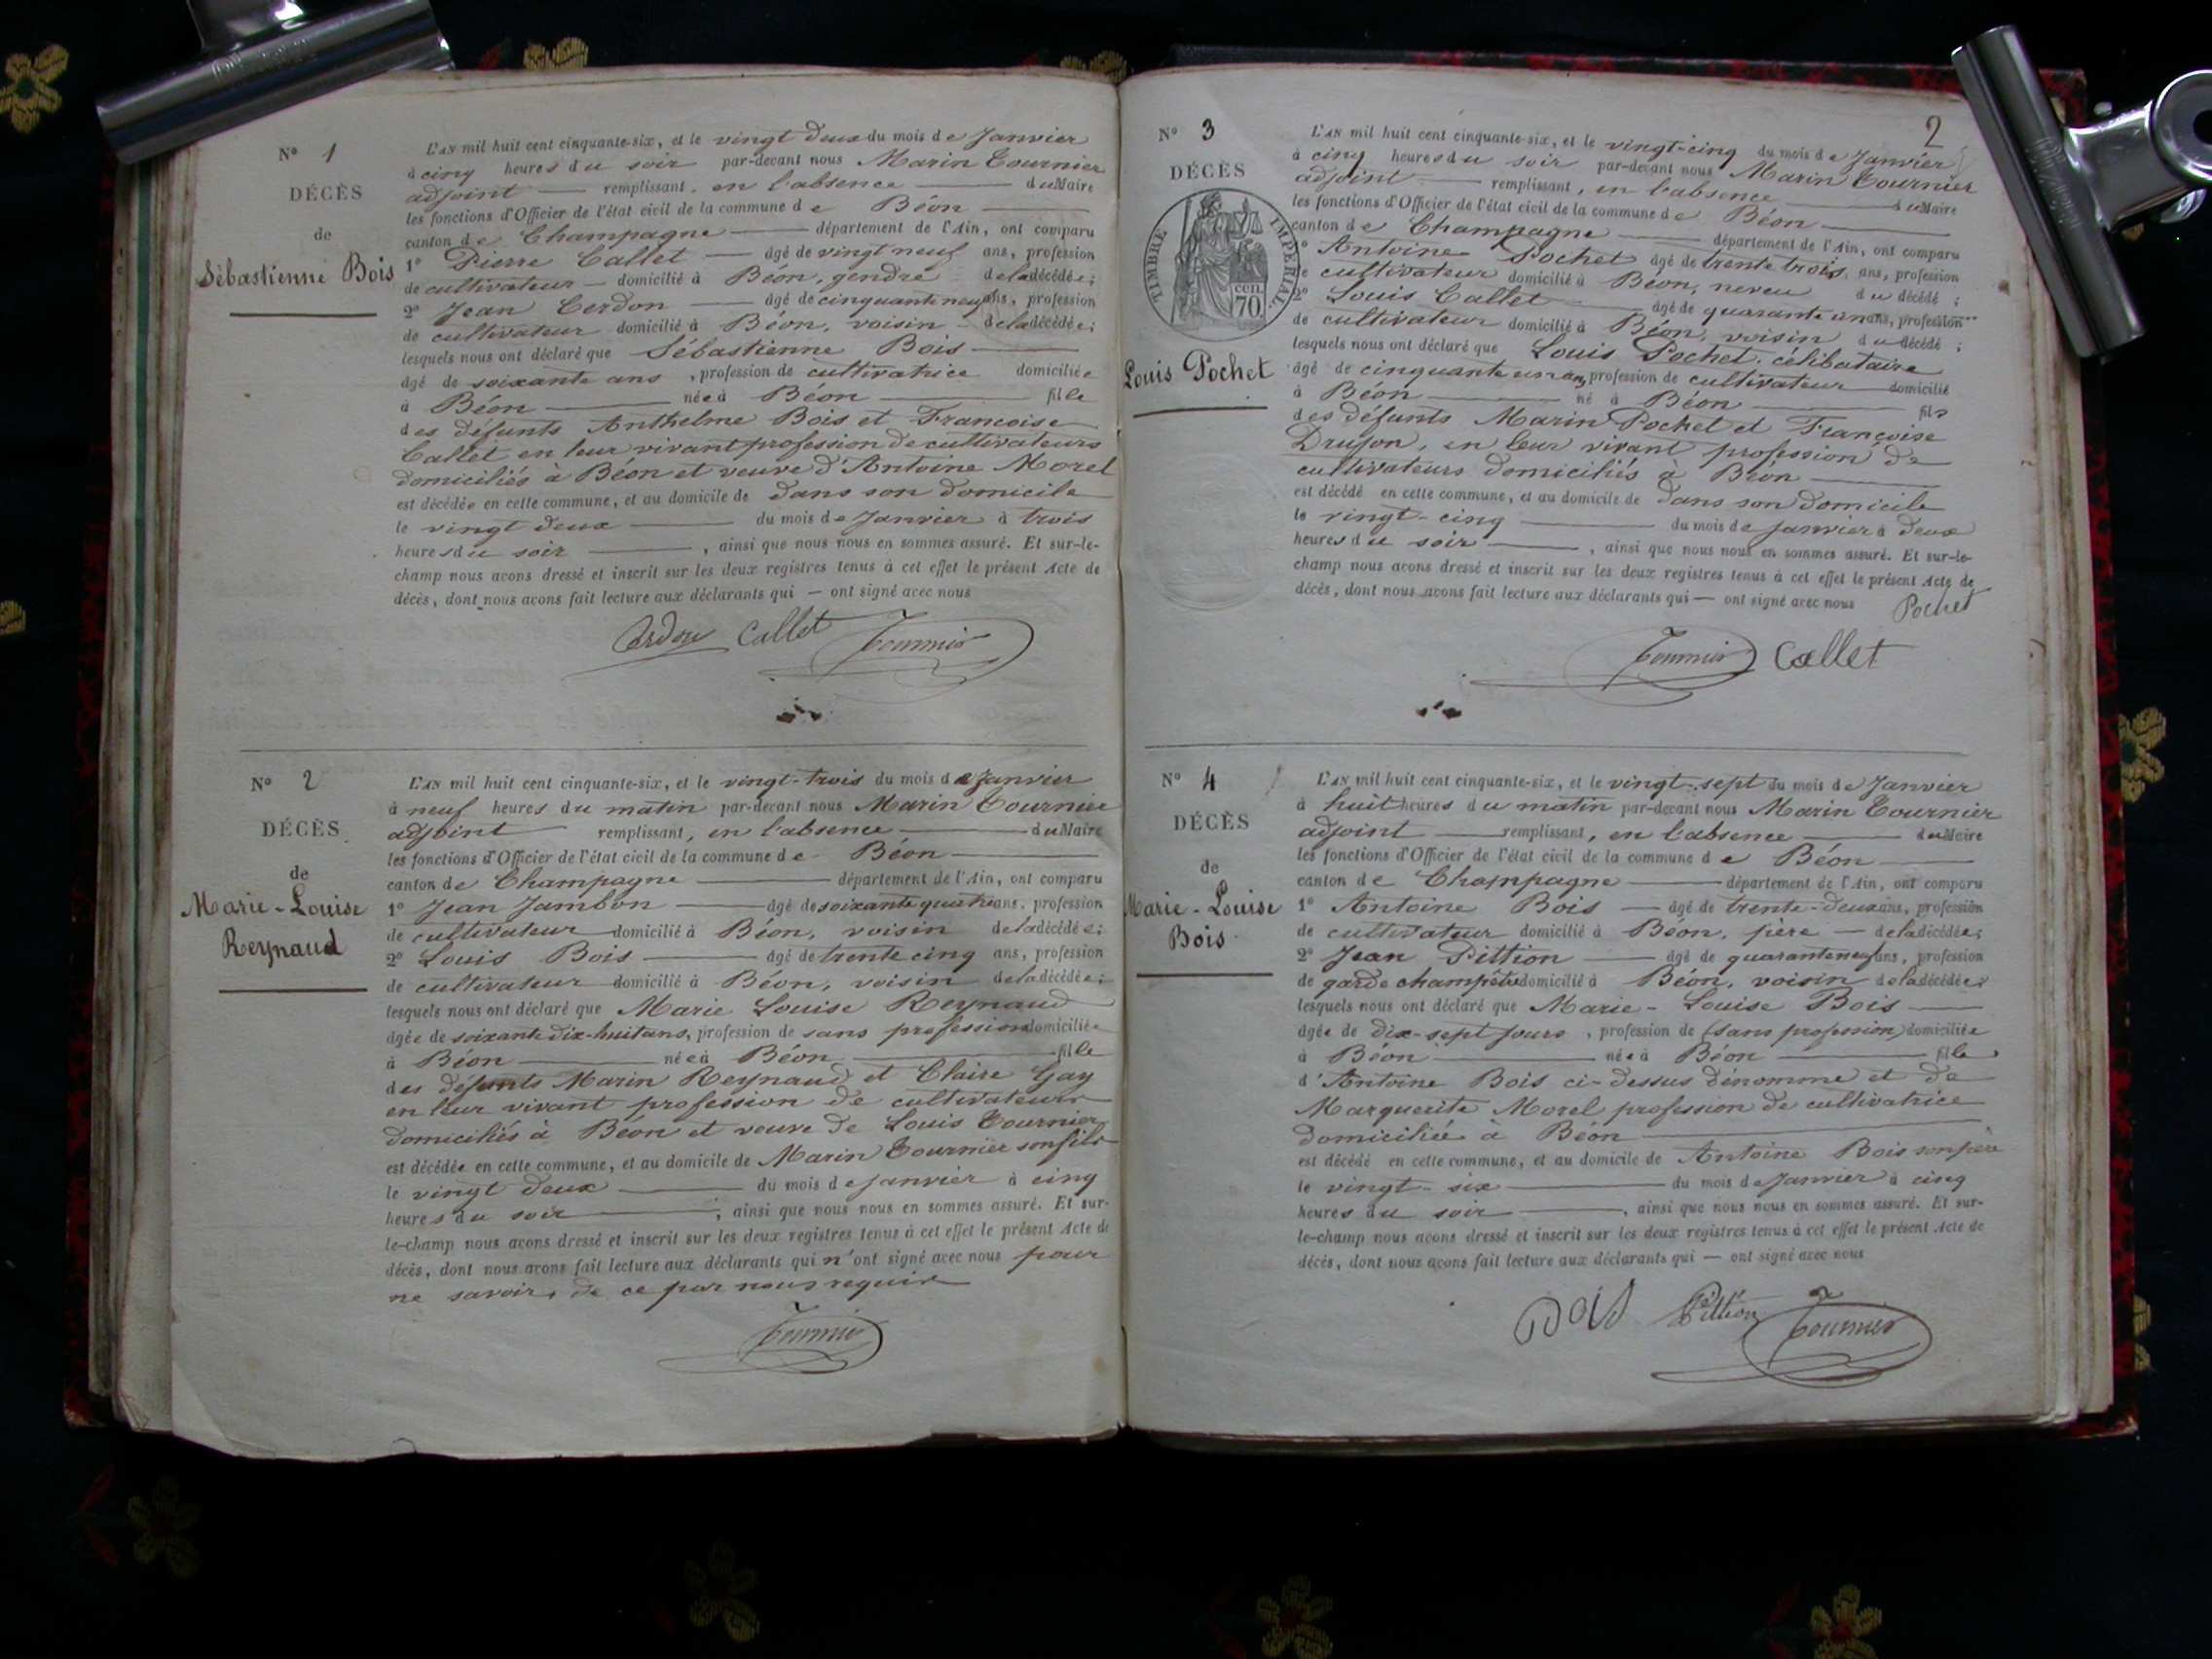 N° 1
DÉCÈS
de
Sébastienne Bois
L'AN mil huit cent cinquante-six, et le vingt deux du mois de Janvier
à cinq heures du soir par-devant nous Marin Tournier
adjoint remplissant, en l'absence du Maire
les fonctions d'Officier de l'état civil de la commune de Béon
canton de Champagne département de l'Ain, ont comparu
1° Pierre Callet âgé de vingt neuf ans, profession
de cultivateur domicilié à Béon, gendre de la décédée;
2° Jean Cerdon âgé de cinquante neuf ans, profession
de cultivateur domicilié à Béon, voisin de la décédée;
lesquels nous ont déclaré que Sébastienne Bois
âgé de soixante ans, profession de cultivatrice domiciliée
à Béon née à Béon fille
des défunts Anthelme Bois et Francoise
Callet en leur vivant profession de cultivateurs
domiciliés à Béon et veuve d'Antoine Morel
est décédée en cette commune, et au domicile de dans son domicile
le vingt deux du mois de Janvier à trois
heures du soir, ainsi que nous nous en sommes assuré. Et sur-le-
champ nous avons dressé et inscrit sur les deux registres tenus à cet effet le présent Acte de
décès, dont nous avons fait lecture aux déclarants qui — ont signé avec nous
Cerdon Callet Tournier
N° 2
DÉCÈS
de
Marie-Louise
Reynaud
L'AN mil huit cent cinquante-six, et le vingt-trois du mois de Janvier
à neuf heures du matin par-devant nous Marin Tournier
adjoint remplissant, en l'absence du Maire
les fonctions d'Officier de l'état civil de la commune de Béon
canton de Champagne département de l'Ain, ont comparu
1° Jean Jambon âgé de soixante quatre ans, profession
de cultivateur domicilié à Béon, voisin de la décédée;
2° Louis Bois âgé de trente cinq ans, profession
de cultivateur domicilié à Béon, voisin de la décédée;
lesquels nous ont déclaré que Marie Louise Reynaud
âgée de soixante dix-huit ans, profession de sans profession domiciliée
à Béon née à Béon fille
des défunts Marin Reynaud et Claire Gay
en leur vivant profession de cultivateurs
domiciliés à Béon et veuve de Louis Tournier
est décédée en cette commune, et au domicile de Marin Tournier son fils
le vingt deux du mois de Janvier à cinq
heures du soir, ainsi que nous nous en sommes assuré. Et sur-
le-champ nous avons dressé et inscrit sur les deux registres tenus à cet effet le présent Acte de
décès, dont nous avons fait lecture aux déclarants qui n'ont signé avec nous pour
ne savoir, de ce par nous requis
Tournier
2
N° 3
DÉCÈS
TIMBRE IMPÉRIAL
70 cen.
Louis Pochet
L'AN mil huit cent cinquante-six, et le vingt-cinq du mois de Janvier
à cinq heures du soir par-devant nous Marin Tournier
adjoint remplissant, en l'absence du Maire
les fonctions d'Officier de l'état civil de la commune de Béon
canton de Champagne département de l'Ain, ont comparu
Antoine Pochet âgé de trente trois ans, profession
de cultivateur domicilié à Béon, neveu du décédé;
2° Louis Callet âgé de quarante un ans, profession
de cultivateur domicilié à Béon, voisin du décédé;
lesquels nous ont déclaré que Louis Pochet, célibataire
âgé de cinquante un ans, profession de cultivateur domicilié
à Béon né à Béon fils
des défunts Marin Pochet et Françoise
Drujon, en leur vivant profession de
cultivateurs domiciliés à Béon
est décédé en cette commune, et au domicile de dans son domicile
le vingt-cinq du mois de Janvier à deux
heures du soir, ainsi que nous nous en sommes assuré. Et sur-le-
champ nous avons dressé et inscrit sur les deux registres tenus à cet effet le présent Acte de
décès, dont nous avons fait lecture aux déclarants qui — ont signé avec nous Pochet
Tournier Callet
N° 4
DÉCÈS
de
Marie-Louise
Bois
L'AN mil huit cent cinquante-six, et le vingt-sept du mois de Janvier
à huit heures du matin par-devant nous Marin Tournier
adjoint remplissant, en l'absence du Maire
les fonctions d'Officier de l'état civil de la commune de Béon
canton de Champagne département de l'Ain, ont comparu
1° Antoine Bois — âgé de trente-deux ans, profession
de cultivateur domicilié à Béon, père — de la décédée;
2° Jean Pittion âgé de quarante neuf ans, profession
de garde champêtre domicilié à Béon, voisin de la décédée;
lesquels nous ont déclaré que Marie-Louise Bois
âgée de dix-sept jours, profession de (sans profession) domiciliée
à Béon née à Béon fille
d'Antoine Bois ci-dessus dénommé et de
Marguerite Morel profession de cultivatrice
domiciliée à Béon
est décédé en cette commune, et au domicile de Antoine Bois son père
le vingt-six du mois de Janvier à cinq
heures du soir, ainsi que nous nous en sommes assuré. Et sur-
le-champ nous avons dressé et inscrit sur les deux registres tenus à cet effet le présent Acte de
décès, dont nous avons fait lecture aux déclarants qui — ont signé avec nous
Bois Pittion Tournier